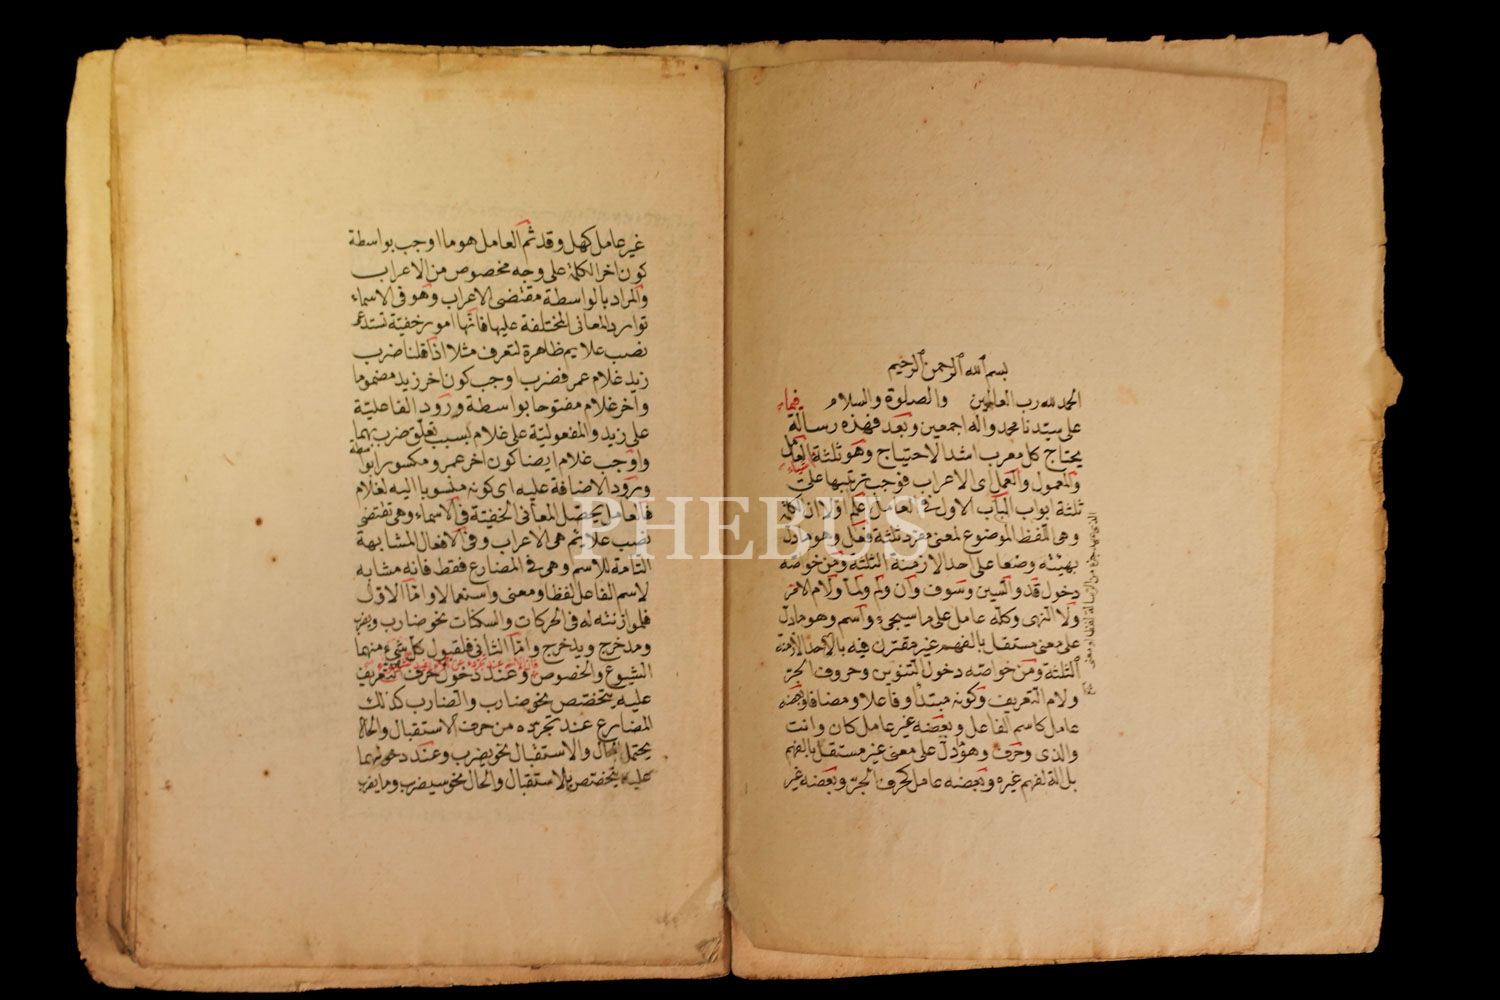 بسم الله الرحمن الرحيم
الحمد لله رب العالمين والصلوة والسلام
على سيدنا محمد واله اجمعين وبعد فهذه رسالة فيما
يحتاج كل معرب اشد الاحتياج وهو ثلثة العامل
والمعمول والعمل اى الاعراب فوجب ترتيبها على
ثلثة ابواب الباب الاول فى العامل اعلم اولا ان الكلمة
وهى اللفظ الموضوع لمعنى مفرد ثلثة فعل وهو مادل
بهيئته وضعا على احد الازمنة الثلثة ومن خواصه
دخول قد والسين وسوف وان ولم ولما ولام الامر
ولا النهى وكله عامل على ما سيجئ واسم وهو مادل
على معنى مستقل بالفهم غير مقترن فيه باحد الازمنة
الثلثة ومن خواصه دخول التنوين وحروف الجر
ولام التعريف وكونه مبتدأ وفاعلا ومضافا وبعضه
عامل كاسم الفاعل وبعضه غير عامل كان وانت
والذى وحرف وهو دل على معنى غير مستقل بالفهم
بل الة لفهم غيره وبعضه عامل كحرف الجر وبعضه غير
غير عامل كهل وقد ثم العامل هو ما اوجب بواسطة
كون اخر الكلمة على وجه مخصوص من الاعراب
والمراد بالواسطة مقتضى الاعراب وهو فى الاسماء
توارد المعانى المختلفة عليها فانها امور خفية تستدعى
نصب علايم ظاهرة لتعرف مثلا اذا قلنا ضرب
زيد غلام عمر فضرب اوجب كون اخر زيد مضموما
واخر غلام مفتوحا بواسطة ورود الفاعلية
على زيد والمفعولية على غلام بسبب تعلق ضرب بهما
واوجب غلام ايضا كون اخر عمر ومكسورا بواسطة
ورود الاضافة عليه اى كونه منسوبا اليه لغلام
فالعامل يحصل المعانى الخفية فى الاسماء وهى تقتضى
نصب علائم هى الاعراب وفى الافعال المشابهة
التامة للاسم وهى فى المضارع فقط فانه مشابه
لاسم الفاعل لفظا ومعنى واستعمالا واما الاول
فلموازنته له فى الحركات والسكنات نحو ضارب ويضرب
ومدحرج ويدحرج واما الثانى فلقبول كل شئ منهما
الشيوع والخصوص وعند دخول حرف التعريف
عليه يتخصص نحو ضارب والضارب كذلك
المضارع عند تجرده من حرف الاستقبال والحال
يحتمل الحال والاستقبال نحو يضرب وعند دخولهما
عليه يتخصص بالاستقبال والحال نحو سيضرب وما يضرب
PHEBUS